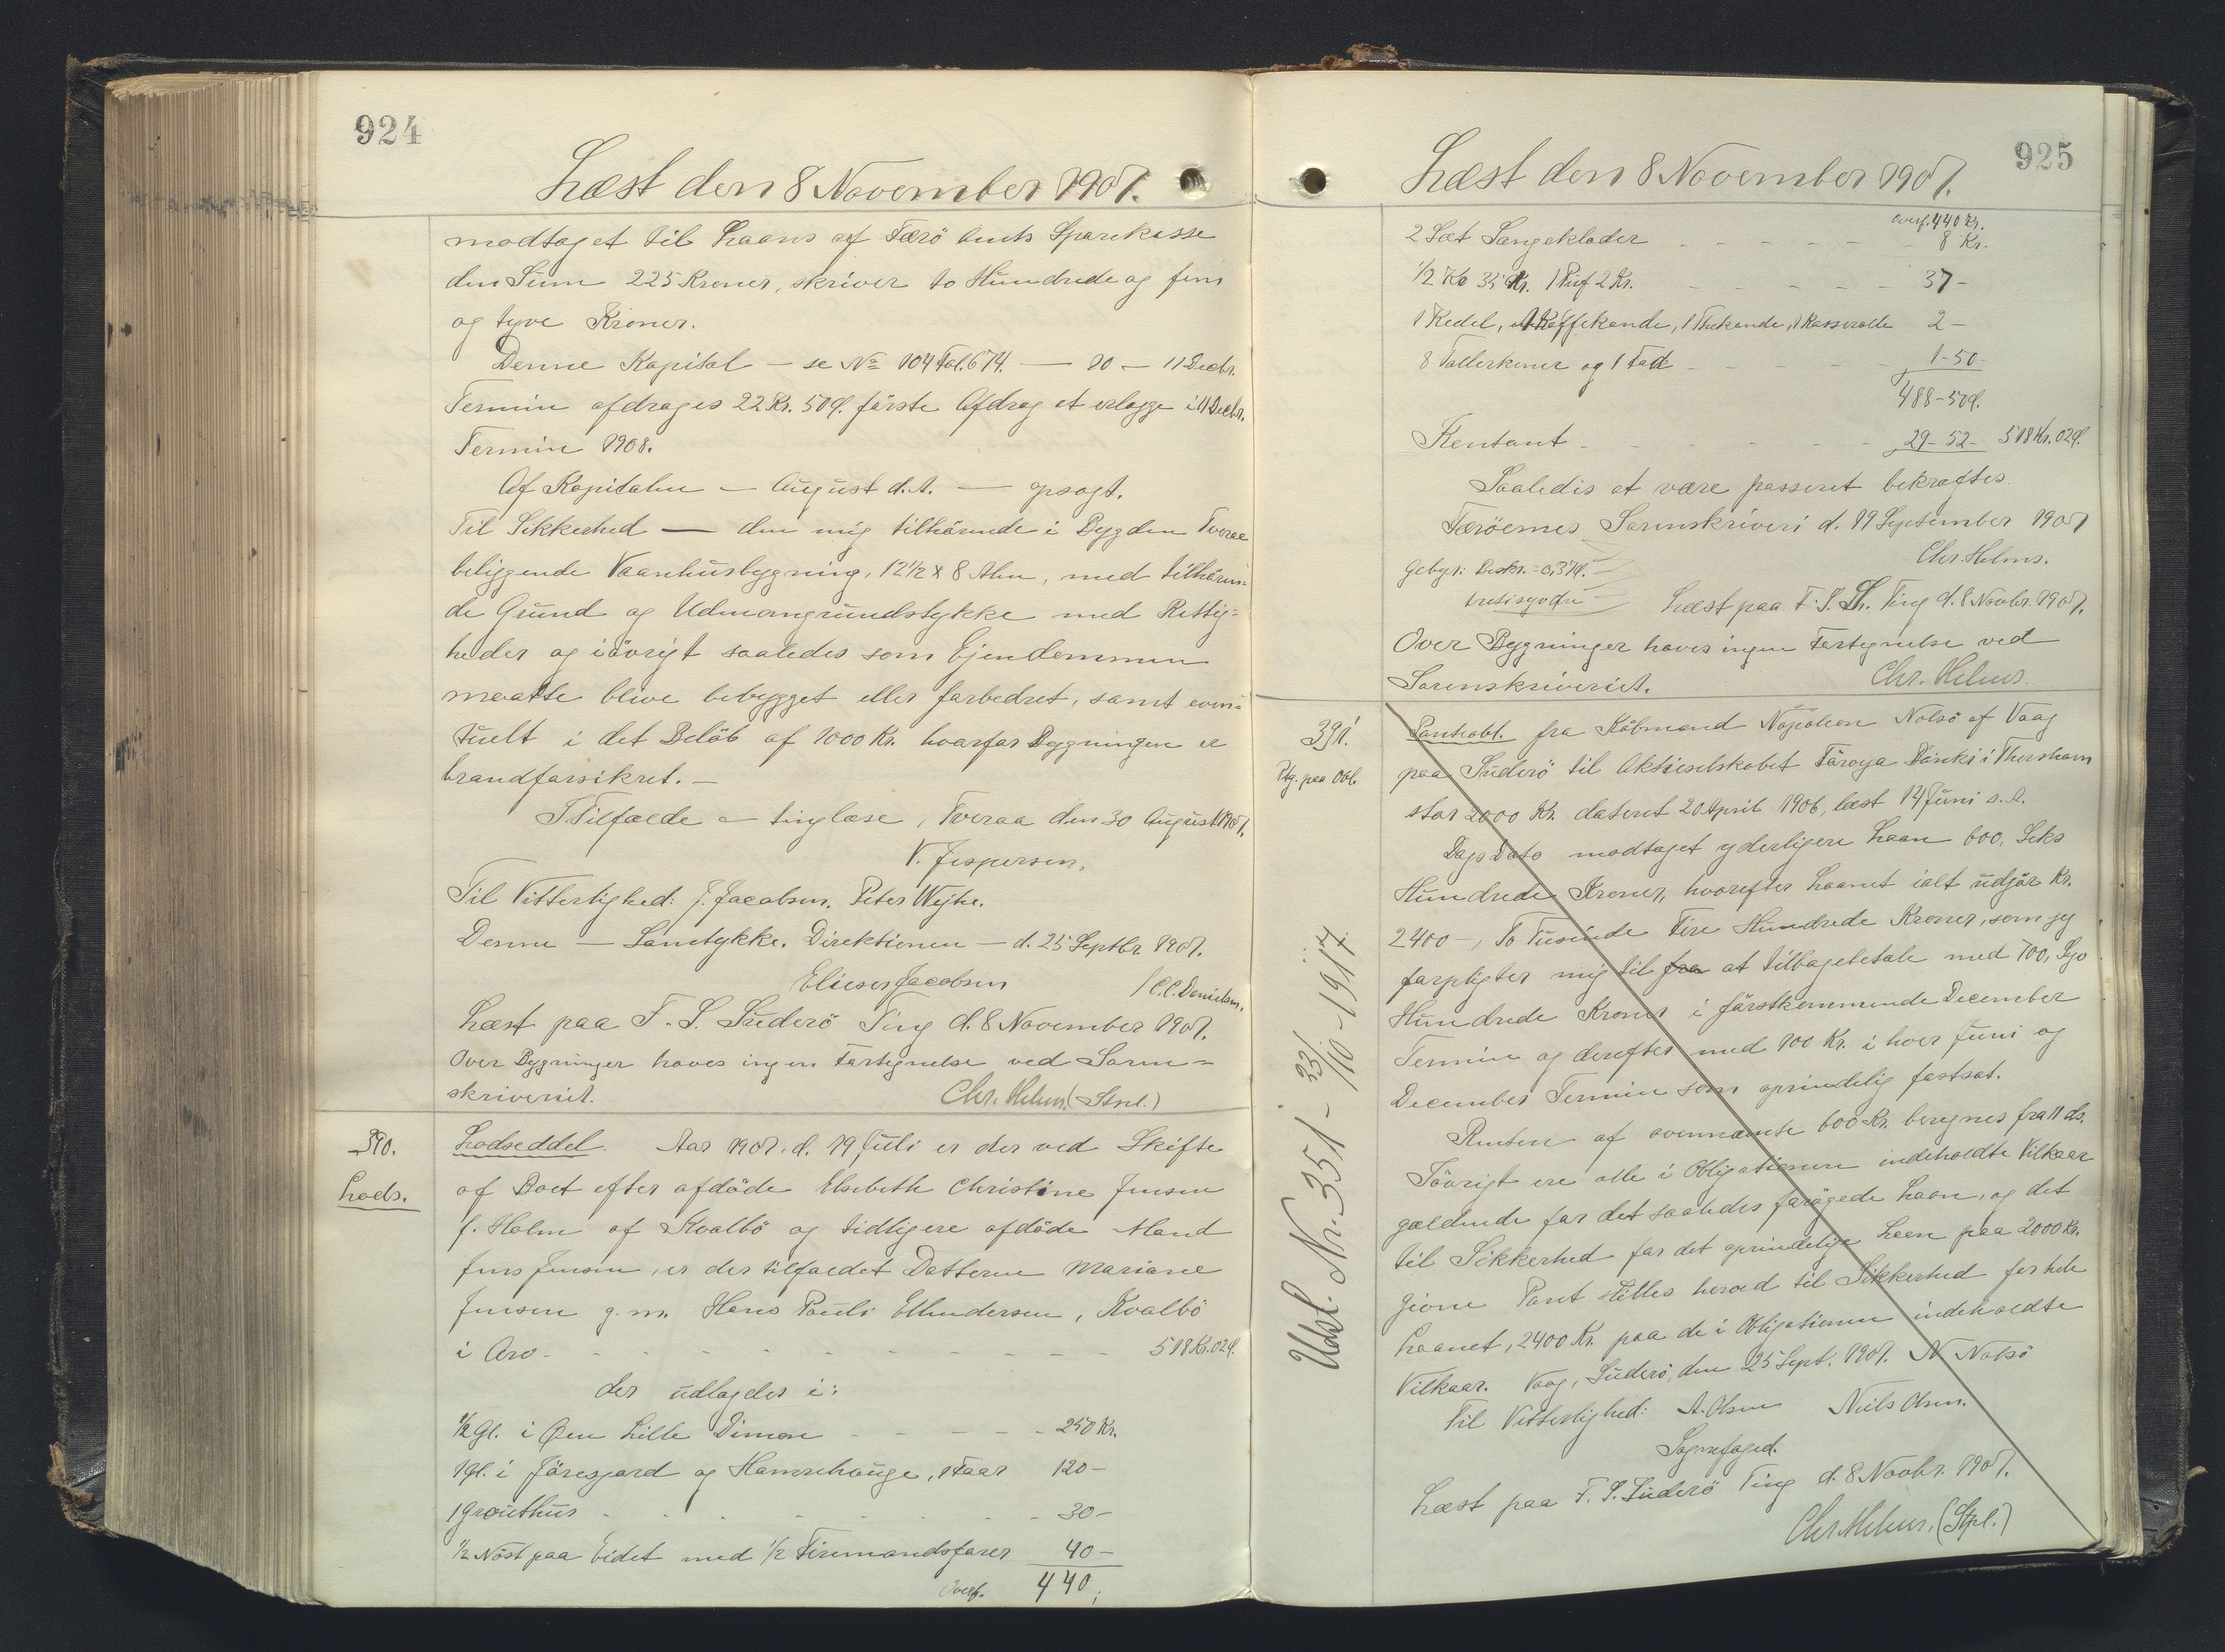 924
Læst den 8 November 1907.
modtaget til Laans af Færö Amts Sparekasse
den Sum 225 Kroner, skriver to Hundrede og fem
og tyve Kroner.
Denne Kapital — se No 104 Fol. 674. — 10 — 11 Decbr.
Termin afdrages 22 Kr. 50 Ø. förste Afdrag at erlægge i 11 Decbr.
Termin 1908.
Af Kapitalen — August d. A. — opsagt.
Til Sikkerhed — den mig tilhörende i Bygden Tveraa
beliggende Vaanhusbygning, 12½ x 8 Alen, med tilhören-
de Grund og Udmarksgrundstykke med Rettig-
heder og iövrigt saaledes som Ejendommen
maatte blive bebygget eller forbedret, samt even-
tuelt i det Belöb af 1000 Kr. hvorfor Bygningen er
brandforsikret. —
I Tilfælde — tinglæse, Tveraa den 30 August 1907.
V. Jespersen.
Til Vitterlighed: J. Jacobsen. Peter Wejhe.
Denne — Samtykke. Direktionen — d. 25 Septbr. 1907.
Elieser Jacobsen / C. C. Danielsen.
Læst paa F. S. Suderö Ting d. 8 November 1907.
Over Bygninger haves ingen Fortegnelse ved Soren-
skriveriet. Chr. Helms. (Stpl.)
390.
Lods.
Lodseddel. Aar 1907. d. 19 Juli er der ved Skifte
af Boet efter afdöde Elsebeth Christine Jensen
f. Holm af Kvalbö og tidligere afdöde Mand
Jens Jensen, er der tilfaldet Datteren Mariane
Jensen g. m. Hans Pauli Ellendersen, Kvalbö
i Arv - - - 518 Kr. 02 Ø.
der udlagdes i:
½ Gl. i Øen Lille Dimon - - - 250 Kr.
1 Gl. i Jöresgard og Hamrehauge, 1 Faar 120 —
1 Grouthus - - - 30 —
½ Nöst paa Eidet med ½ Firemandsfarer 40 —
Overf. 440,
925
Læst den 8 November 1907.
Overf. 440 Kr.
2 Sæt Sengeklæder - - - 8 Kr.
½ Ko 35 Kr. 1 Pust 2 Kr. - - - 37 —
1 Kedel, 1 Kaffekande, 1 Thekande, 1 Kasserolle 2 —
8 Tallerkener og 1 Fad - - - 1-50
488-50 Ø.
Kontant - - - 29-52- 518 Kr. 02 Ø.
Saaledes at være passeret bekræftes.
Færöernes Sorenskriveri d. 19 September 1907
Chr. Helms.
Gebyr: Beskr. = 0,37 Ø.
tretisyv Øre
Læst paa F. S. S. Ting d. 8 Novbr. 1907.
Over Bygninger haves ingen Fortegnelse ved
Sorenskriveriet. Chr. Helms.
391.
Ptg. paa Obl.
Pantobl. fra Köbmand Napoleon Nolsö af Vaag
paa Suderö til Aktieselskabet Föroya Banki i Thorshavn
stor 2000 Kr. dateret 20 April 1906, læst 14 Juni s. A.
Dags Dato modtaget yderligere Laan 600, Seks
Hundrede Kroner, hvorefter Laanet ialt udgör Kr.
2400 —, To Tusinde Fire Hundrede Kroner, som jeg
forpligter mig til fra at tilbagebetale med 700, Syv
Hundrede Kroner i förstkommende December
Termin og derefter med 100 Kr. i hver Juni og
December Termin som oprindelig fastsat.
Renten af ovennævnte 600 Kr. beregnes fra 11 ds.
Iövrigt ere alle i Obligationen indeholdte Vilkaar
gældende for det saaledes forögede Laan, og det
til Sikkerhed for det oprindelige Laan paa 2000 Kr.
givne Pant stilles herved til Sikkerhed for hele
Laanet, 2400 Kr. paa de i Obligationen indeholdte
Vilkaar. Vaag, Suderö, den 25 Sept. 1907. N Nolsö
Til Vitterlighed: A. Olsen Niels Olsen.
Sognefoged.
Læst paa F. S. Suderö Ting d. 8 Novbr. 1907.
Chr. Helms. (Stpl.)
Udsl. Nr. 351 - 23/10 - 1917.